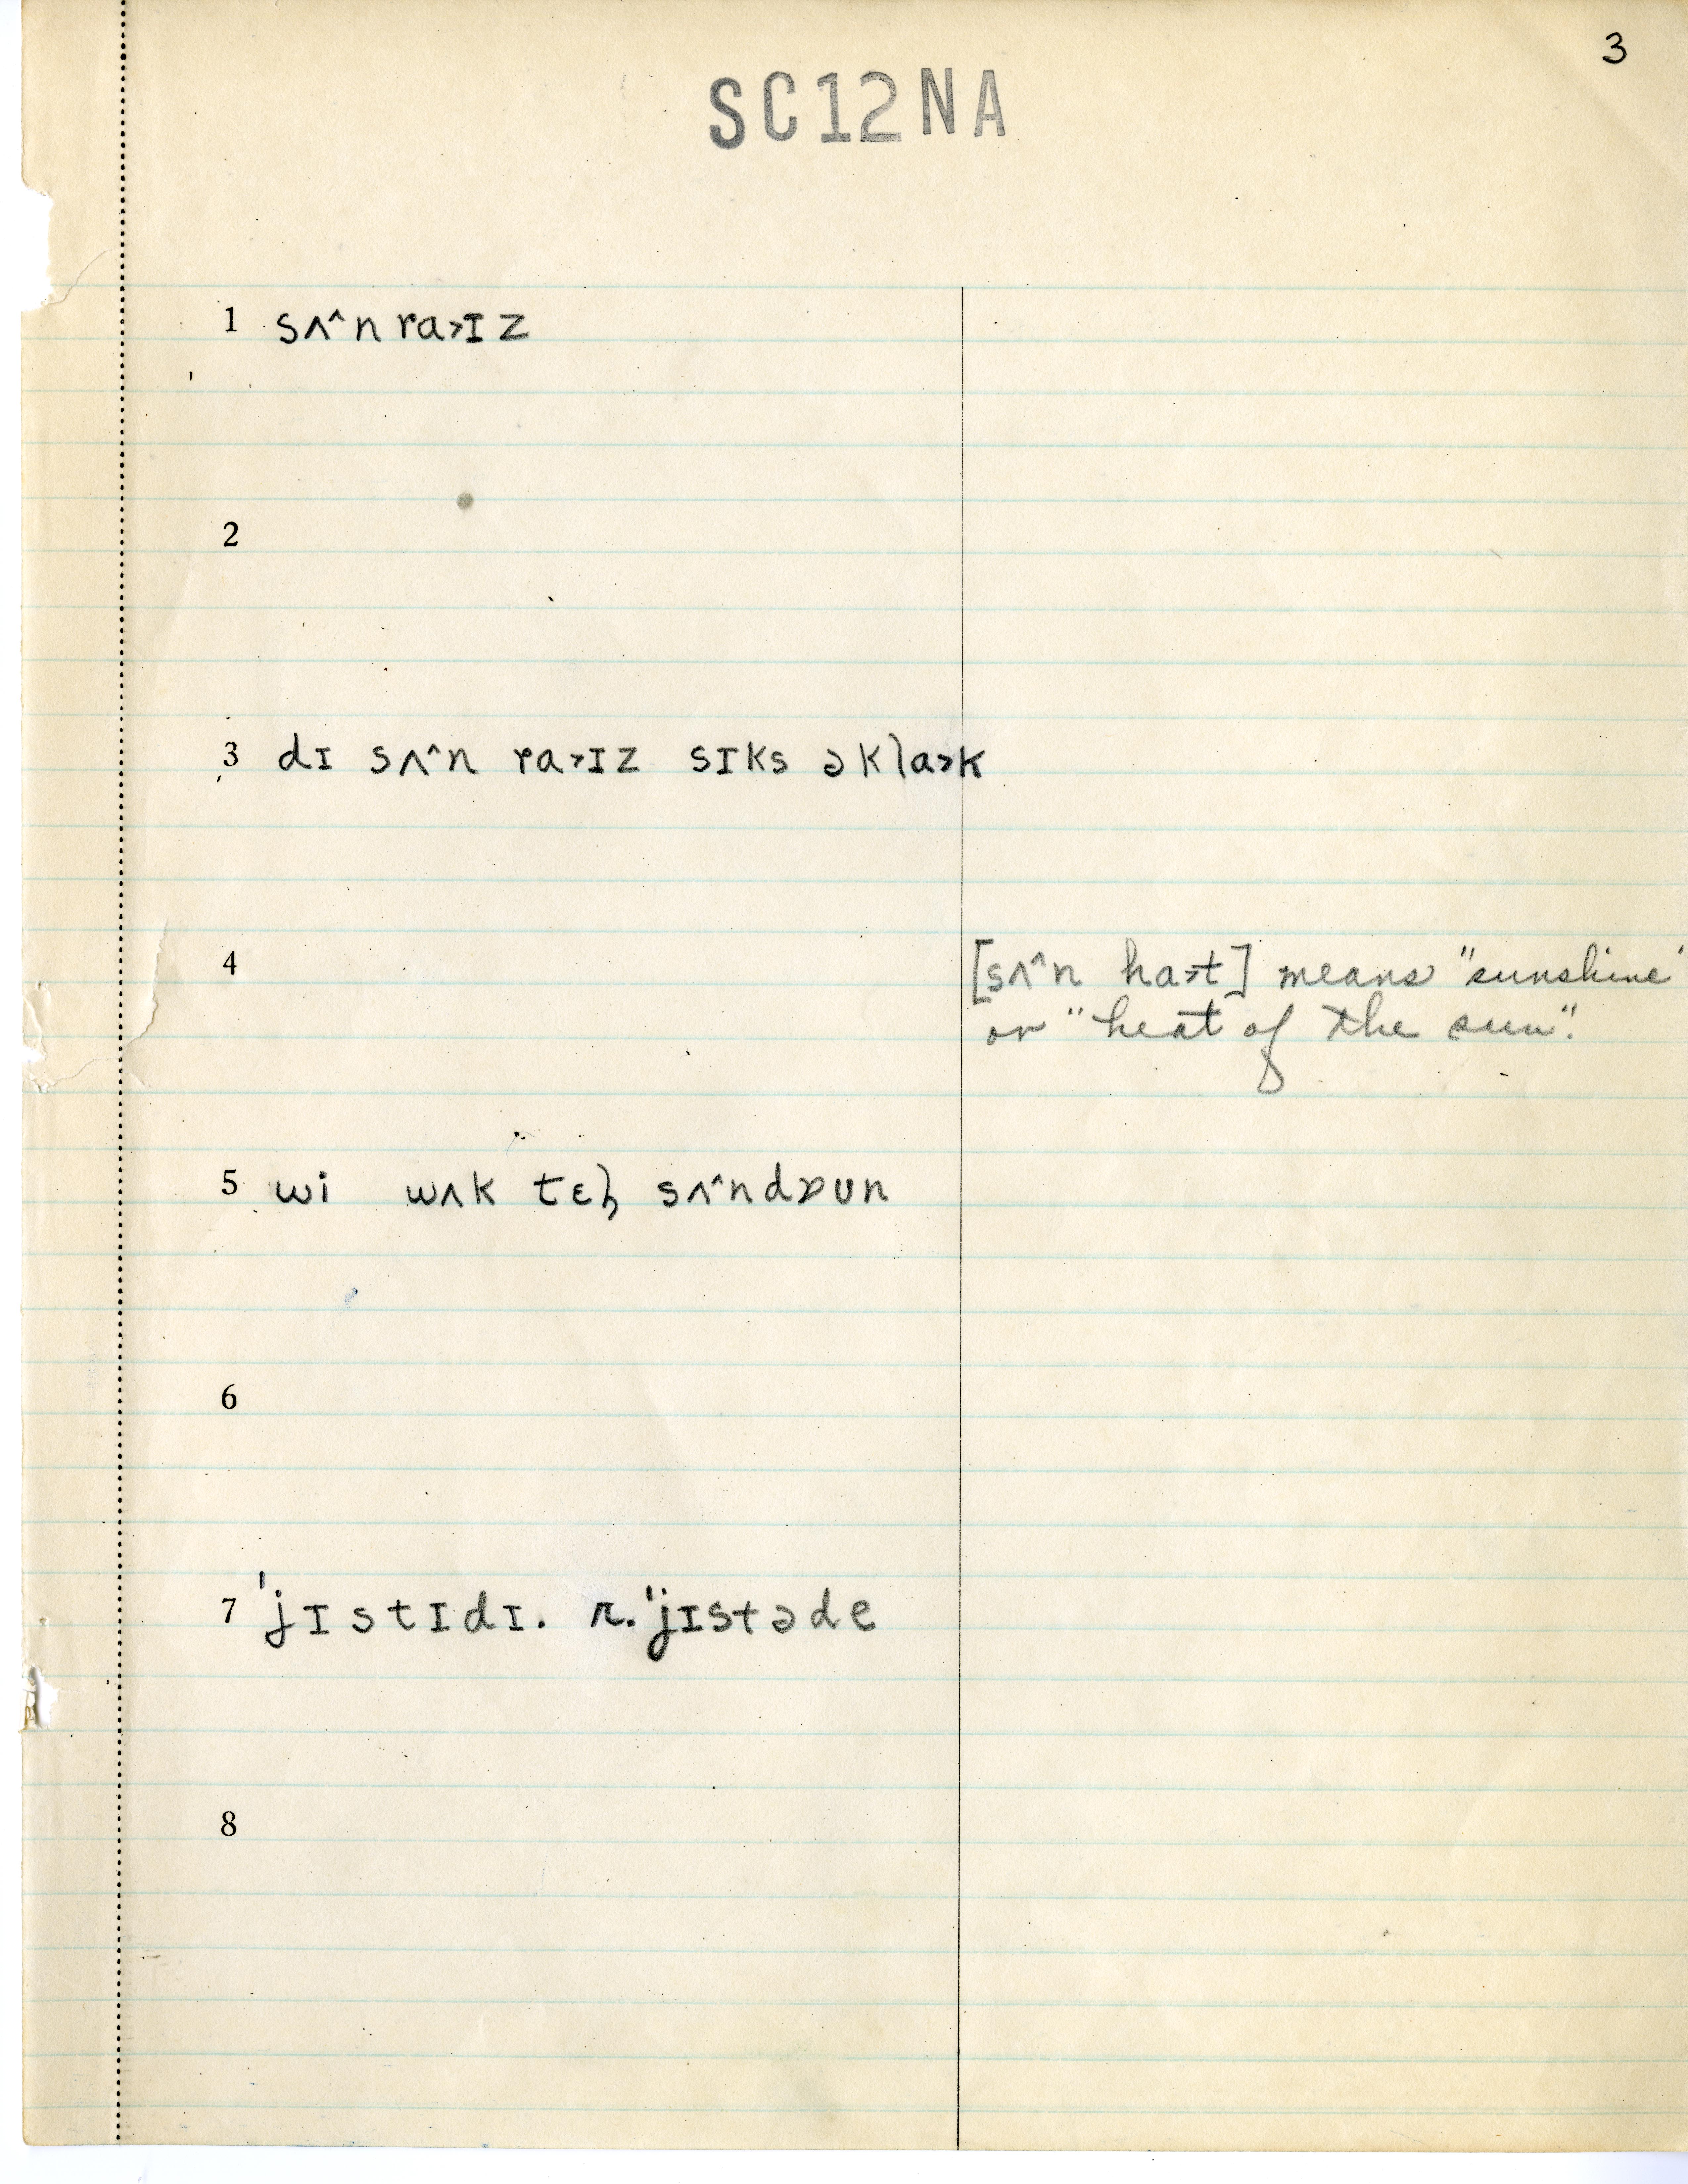 3
SC12NA
1 sʌ^n ra>ɪz
2
3 dɪ sʌ^n ra>ɪz sɪks əkla>k
4 [sʌ^n ha>t] means "sunshine"
or "heat of the sun".
5 wi wʌk sʌ^ndɒʊn
6
7 'jɪstɪdɪ. r.'jɪstəde
8